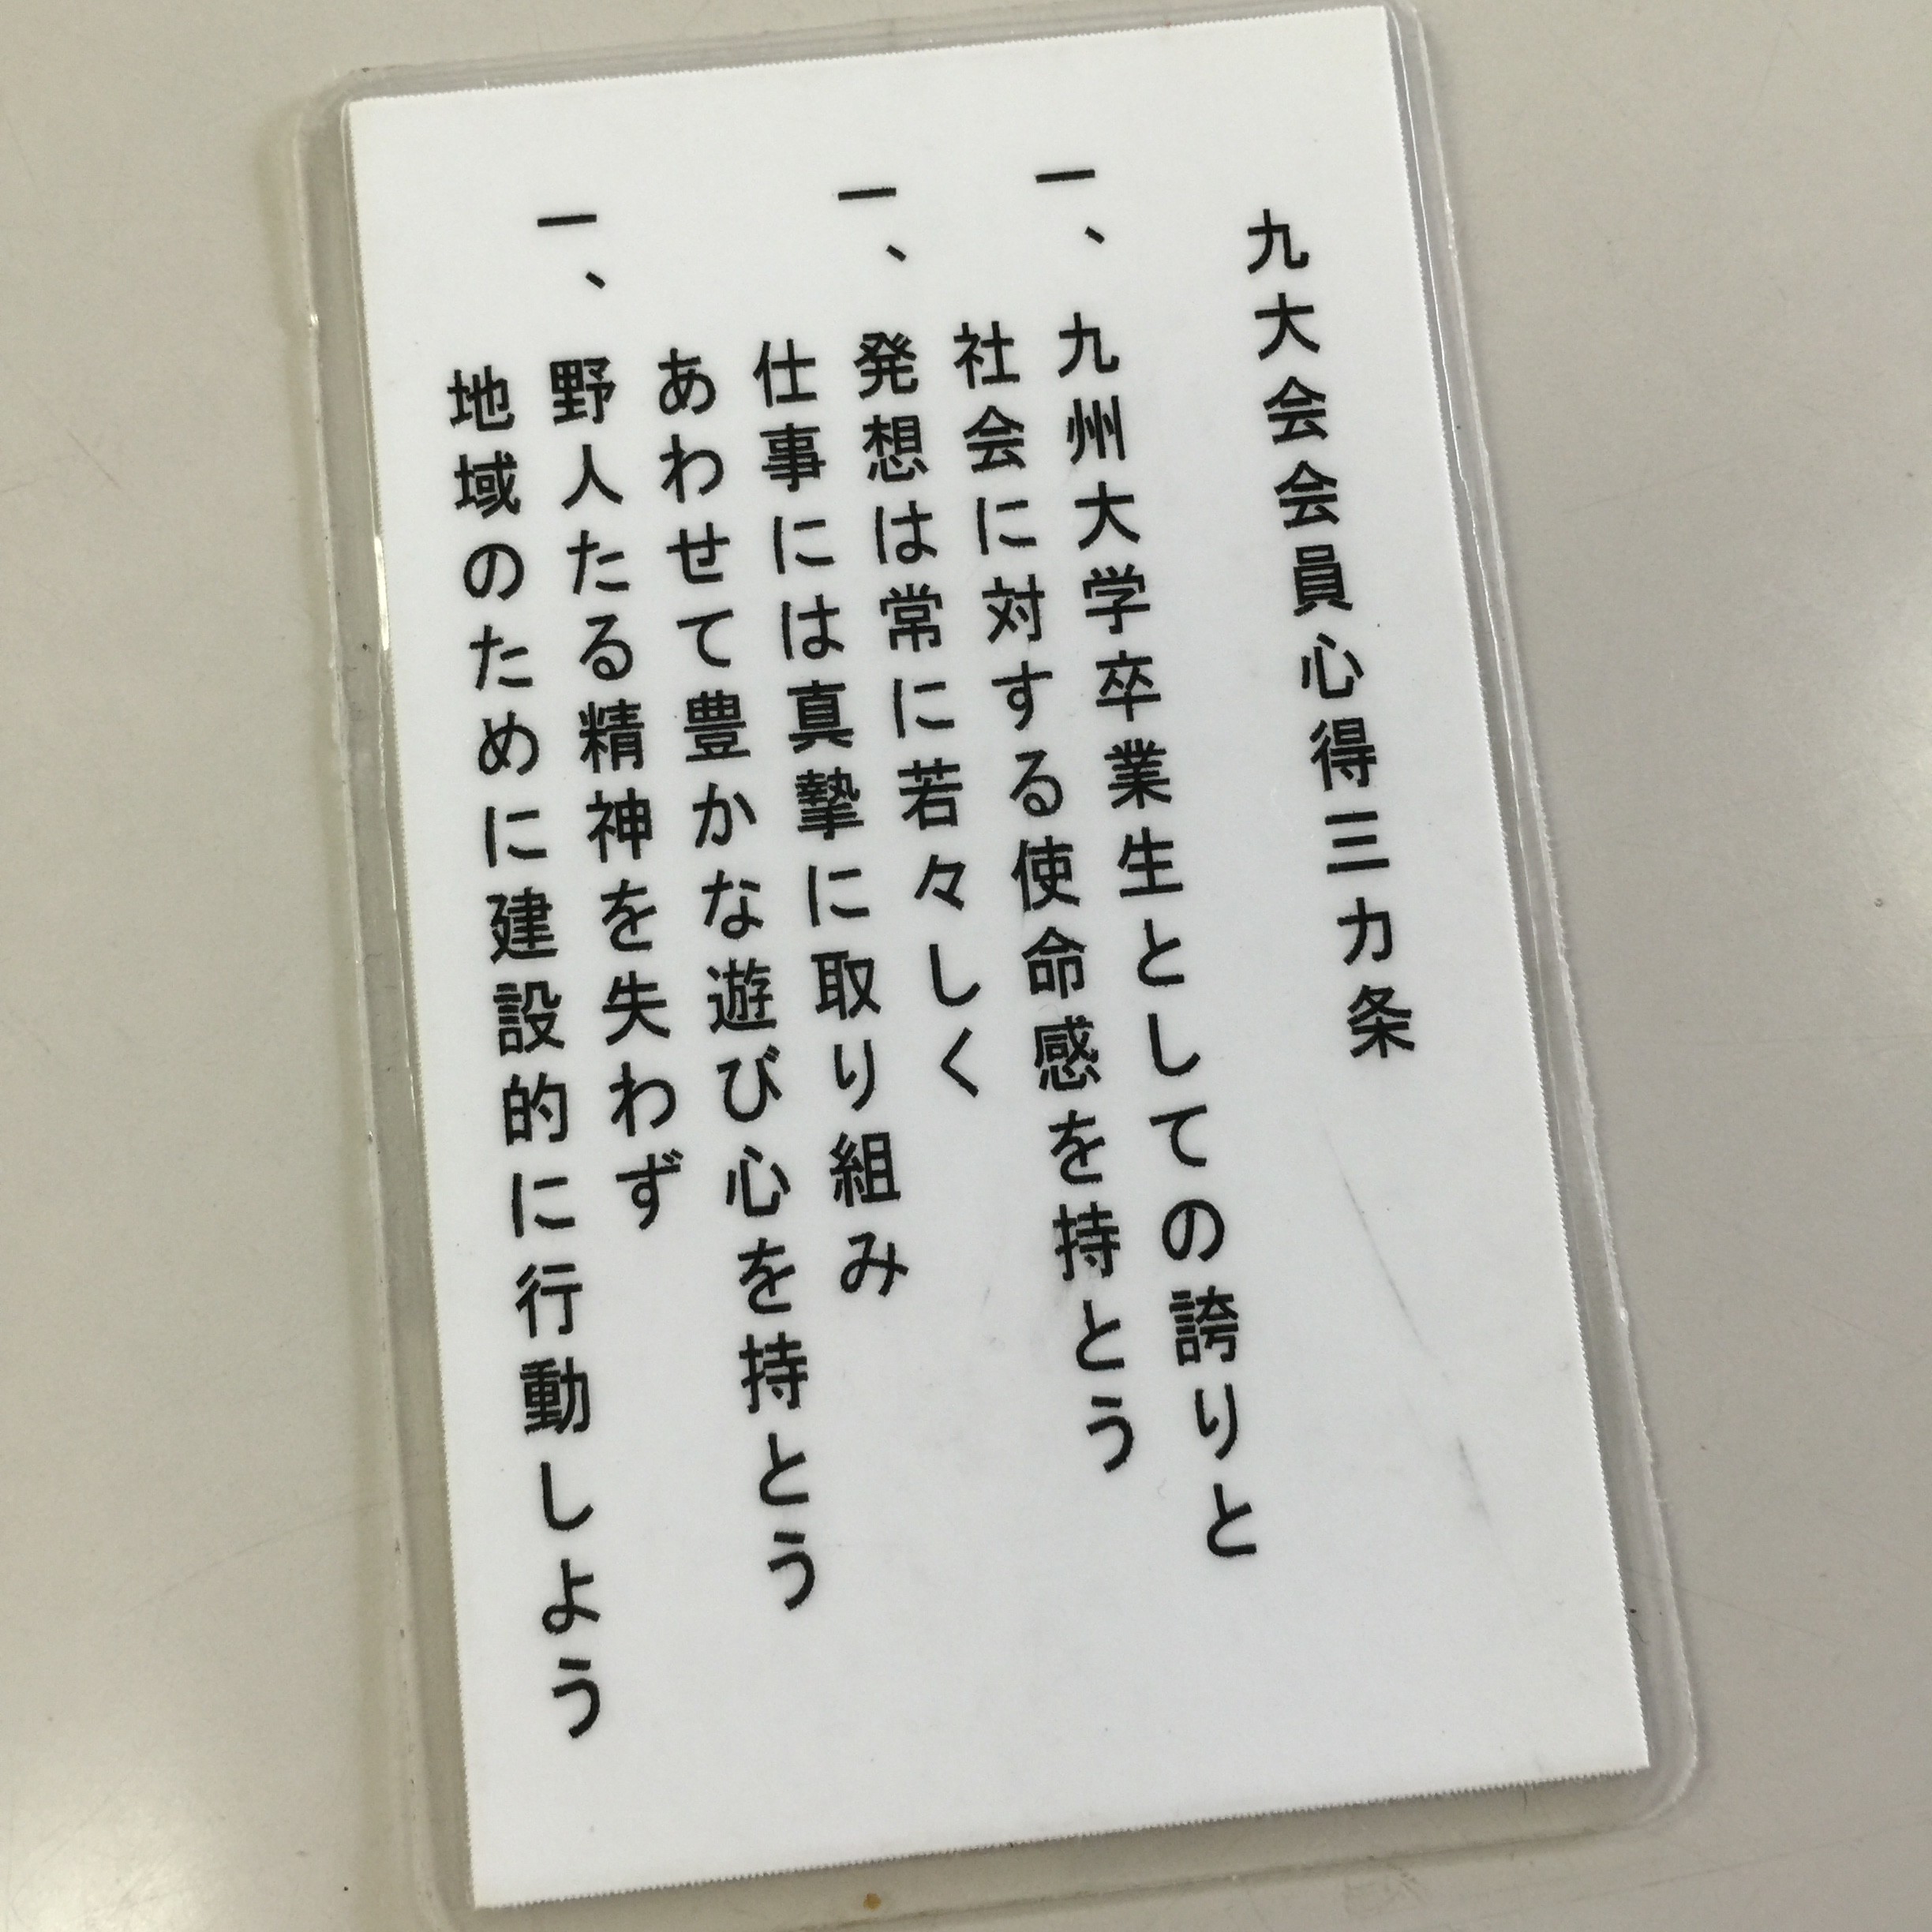 九大会会員心得三力条
一、九州大学卒業生としての誇りと
社会に対する使命感を持とう
一、発想は常に若々しく
仕事には真摯に取り組み
あわせて豊かな遊び心を持とう
一、野人たる精神を失わず
地域のために建設的に行動しよう